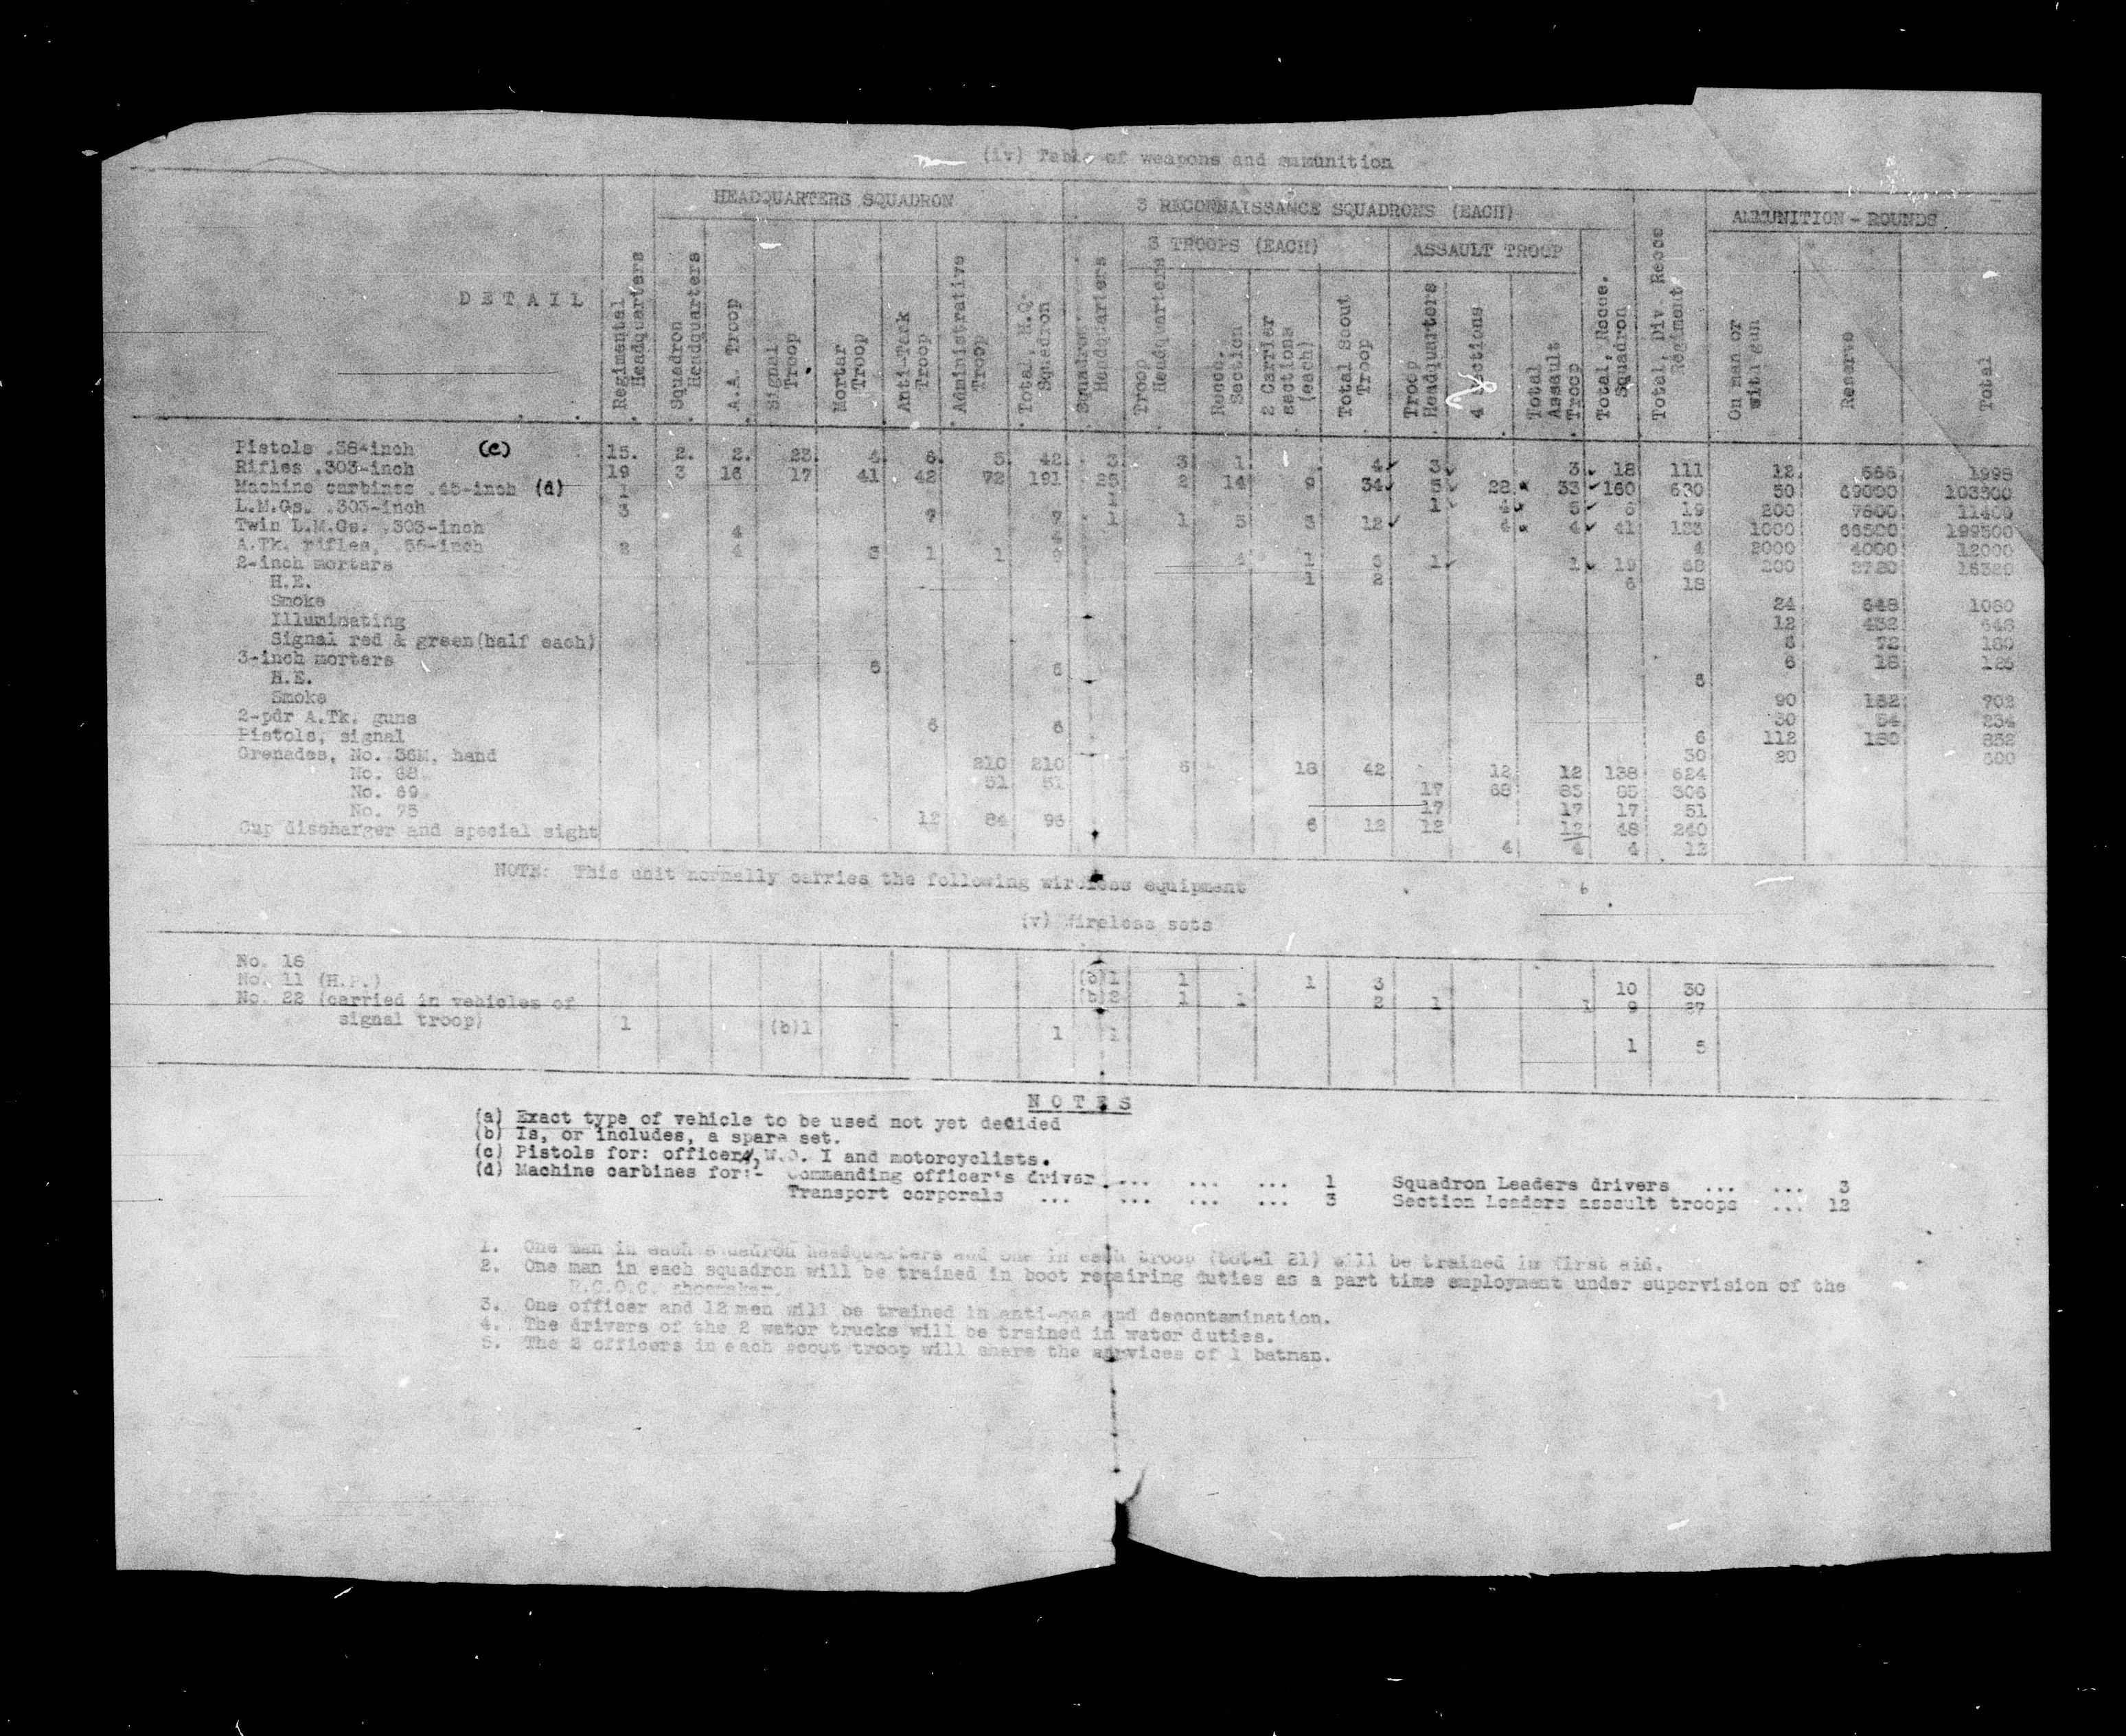 (iv) Table of weapons and ammunition
HEADQUARTERS SQUADRON
3 RECONNAISSANCE SQUADRONS (EACH)
AMMUNITION - ROUNDS
3 TROOPS (EACH)
ASSAULT TROOP
DETAIL
Regimental Headquarters
Squadron Headquarters
A.A. Troop
Signal Troop
Mortar Troop
Anti-Tank Troop
Administrative Troop
Total, H.Q. Squadron
Squadron Headquarters
Troop Headquarters
Recce. Section
2 Carrier sections (each)
Total Scout Troop
Troop Headquarters
4 Sections
Total Assault Troop
Total, Recce. Squadron
Total, Div. Recce Regiment
On man or with gun
Reserve
Total
Pistols .38-inch (c) 15. 2. 2. 23. 4. 6. 5. 42. 3 3 1. 4 3 3 18 111 12 666 1998
Rifles .303-inch 19 3 16 17 41 42 72 191 25 2 14 9 34 5 28 33 160 630 50 69000 103500
Machine carbines .45-inch (d) 1 1 1 4 5 6 19 200 7600 11400
L.M.Gs. .303-inch 3 7 7 1 1 5 3 12 4 4 41 133 1000 66500 199500
Twin L.M.Gs. .303-inch 4 4 4 2000 4000 12000
A.Tk. rifles, .55-inch 2 4 3 1 1 4 1 6 1 1 19 68 200 2720 16320
2-inch mortars 1 2 6 18
H.E. 24 648 1080
Smoke 12 432 648
Illuminating 6 72 180
Signal red & green(half each) 6 18 126
3-inch mortars 6 6 6
H.E. 90 162 702
Smoke 30 54 234
2-pdr A.Tk. guns 6 6 6 112 180 852
Pistols, signal 30 20 600
Grenades, No. 36M, hand 210 210 6 18 42 12 12 138 624
No. 68 51 51 17 68 85 85 306
No. 69 17 17 17 51
No. 75 12 84 96 6 12 12 12 48 240
Cup discharger and special sight 4 4 4 12
NOTE: This unit normally carries the following wireless equipment
6
(v) Wireless sets
No. 18 (b)1 1 1 3 10 30
No. 11 (H.P.) (b)2 1 1 2 1 1 9 27
No. 22 (carried in vehicles of
signal troop) 1 (b)1 1 1 1 5
NOTES
(a) Exact type of vehicle to be used not yet decided
(b) Is, or includes, a spare set.
(c) Pistols for: officers, W.O. I and motorcyclists.
(d) Machine carbines for:- Commanding officer's driver ... ... ... 1 Squadron Leaders drivers ... ... 3
Transport corporals ... ... ... ... 3 Section Leaders assault troops ... 12
1. One man in each squadron headquarters and one in each troop (total 21) will be trained in first aid.
2. One man in each squadron will be trained in boot repairing duties as a part time employment under supervision of the
R.C.O.C. shoemaker.
3. One officer and 12 men will be trained in anti-gas and decontamination.
4. The drivers of the 2 water trucks will be trained in water duties.
5. The 2 officers in each scout troop will share the services of 1 batman.